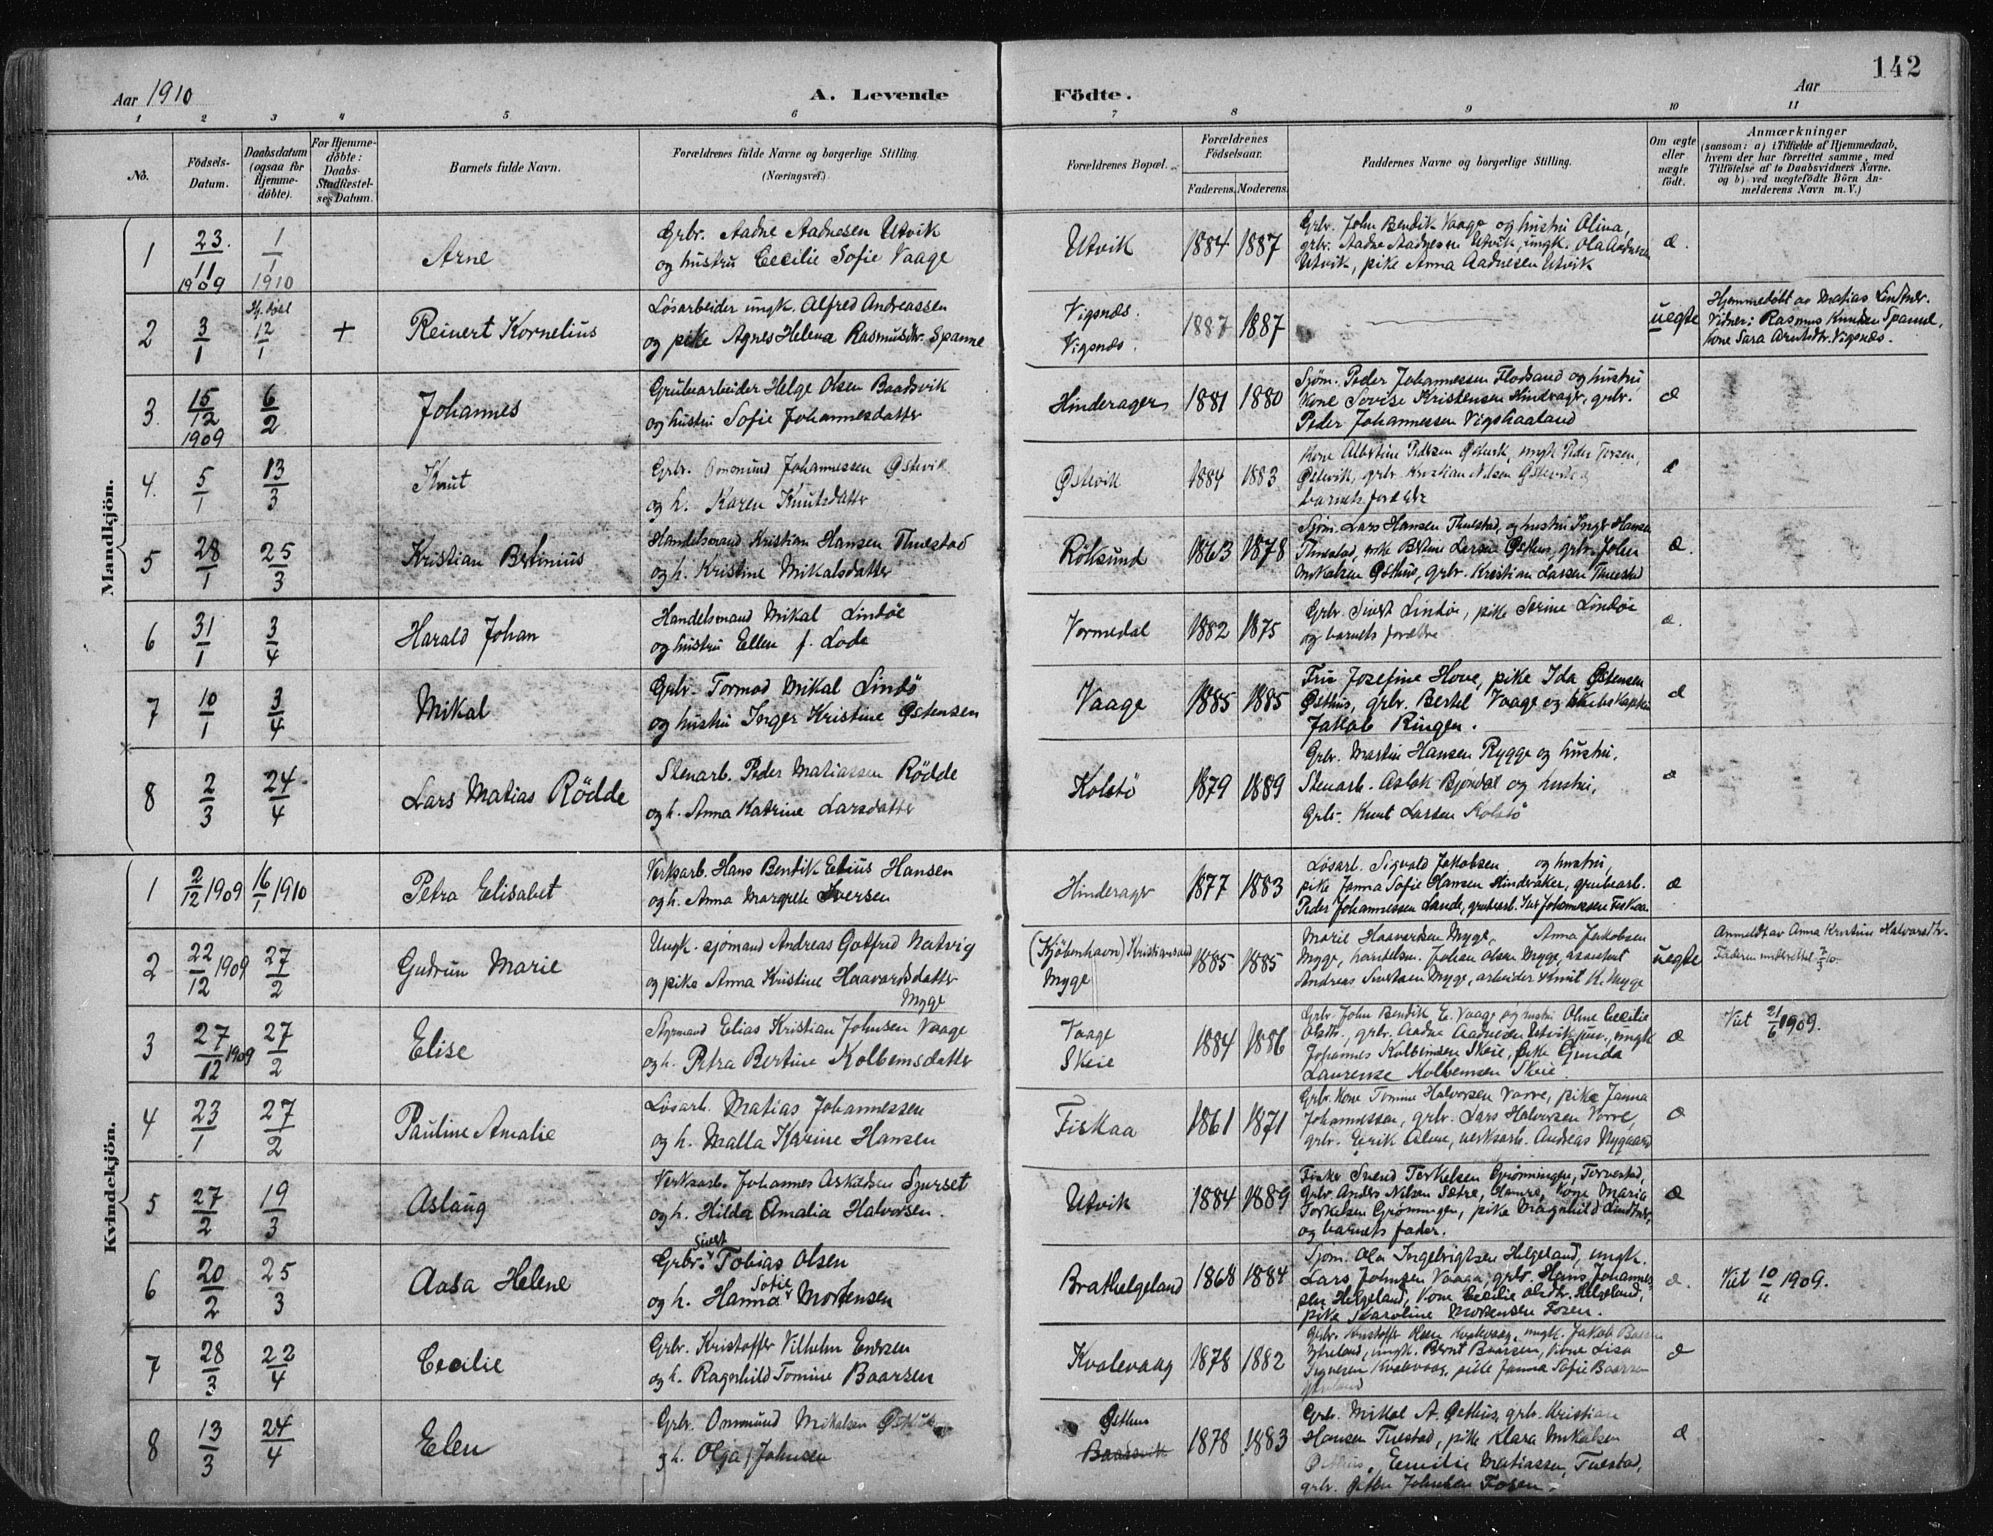 142
Aar 1910
A. Levende
Födte.
Aar
1 2 3 4 5 6 7 8 9 10 11
No.
Födsels-Datum.
Daabsdatum (ogsaa for Hjemmedöbte).
For Hjemmedöbte: Daabs-Stadfæstelses Datum.
Barnets fulde Navn.
Forældrenes fulde Navne og borgerlige Stilling. (Næringsvei).
Forældrenes Bopæl.
Forældrenes Födselsaar.
Faderens. Moderens.
Faddernes Navne og borgerlige Stilling.
Om ægte eller uægte födt.
Anmærkninger
(saasom: a) i Tilfælde af Hjemmedaab, hvem der har forrettet samme, med Tilföielse af to Daabsvidners Navne, og b) ved uægtefödte Börn Anmelderens Navn m. V.)
Mandkjön.
1 23/11 1909 1/1 1910 Arne
Grbr. Aadne Aadnesen Utvik
og hustru Cecilie Sofie Vaage
Utvik 1884 1887
Grbr. John Bendik Vaage og hustru Olina,
grbr. Aadne Aadnesen Utvik, ungk. Ola Aadnesen
Utvik, pike Anna Aadnesen Utvik
æ.
2 3/1 Hj. døbt 12/1 + Reinert Kornelius
Løsarbeider ungk. Alfred Andreassen
og pike Agnes Helena Rasmusdtr. Spanne
Vigsnæs.
Vigsnæs.
1887 1887
uegte
Hjemmedøbt av Matias Lindtner.
Vidner: Rasmus Knudsen Spanne,
kone Sara Arntsdtr. Vigsnæs.
3. 15/12 1909 6/2 Johannes
Grubearbeider Helge Olsen Baadsvik
og hustru Sofie Johannesdatter
Hinderager 1881 1880
Sjøm. Peder Johannessen Flodsand og hustru
Kone Lovise Kristensen Hinderager, grbr.
Peder Johannessen Vigshaaland
æ
4. 5/1 13/3 Knut
Grbr. Johannessen Østevik
og h. Karen Knutsdatter
Østevik 1884 1883
Kone Albertine Pedersen Østevik, ungk. Peder
Østevik, grbr. Kristian Nilsen Østevik og
barnets forældre
æ
5 28/1 25/3 Kristian Bertinius
Handelsmand Kristian Hansen Thuestad
og h. Kristine Mikalsdatter
Röksund 1863 1878
Sjøm. Lars Hansen Thuestad, og hustru Inger Hansen
Thuestad, pike Bertine Larsen Østhus, grbr. John
Mikalsen Østhus, grbr. Kristian Larsen Thuestad
æ.
6 31/1 3/4 Harald Johan
Handelsmand Mikal Lindöe
og hustru Ellen f. Lode
Vormedal 1882 1875
Grbr. Sivert Lindöe, pike Serine Lindöe
og barnets forældre
æ.
7 10/1 3/4 Mikal
Grbr. Tormod Mikal Lindö
og hustru Inger Kristine Østensen
Vaage 1885 1885
Fru Josefine Hove, pike Ida Østensen
Østhus, grbr. Bertel Vaage og skibskaptein
Jakob Ringen.
æ
8 2/3 24/4 Lars Matias Rödde
Stenarb. Peder Matiassen Rödde
og h. Anna Katrine Larsdatter
Kolstö 1879 1889
Grbr. Martin Hansen Rygge og hustru,
Stenarb. Aslak Bjöndal og hustru,
Grbr. Knut Larsen Kolstö
æ
Kvindekjön.
1 2/12 1909 16/1 1910 Petra Elisabet
Verksarb. Hans Bendik Elius Hansen
og h. Anna Margrete Iversen
Hinderager 1877 1883
Løsarb. Sigvald Jakobsen og hustru,
pike Janna Sofie Hansen Hinderaker, grubearb.
Peder Johannessen Lande, grubearb. Johannessen Fiskaa
æ
2 22/12 1909 27/2 Gudrun Marie
Ungk. sjømand Andreas Gotfred Natvig
og pike Anna Kristine Haavardsdatter
Myge
(Kjöbenhavn) Kristiansand
Myge
1885 1885
Marie Haavardsen Myge, Anna Jakobsen
Myge, handelsm. Johan Olsen Myge, assistent
Andreas Myge, arbeider Knut K. Myge
uegte
Anmeldt av Anna Kristine Halvorsdtr.
Faderen underrettet 7/3 10.
3 27/12 1909 27/2 Elise
Styrmand Elias Kristian Johnsen Vaage
og h. Petra Bertine Kolbensdatter
Vaage
Skeie
1884 1886
Grbr. John Bendik E. Vaage og hustru Oline Cecilie
Olsdtr., grbr. Aadne Aadnesen Utvik jun., ungk.
Johannes Kolbensen Skeie, pike Gunda
Laurense Kolbensen Skeie.
æ
Viet 21/6 1909.
4 23/1 27/2 Pauline Amalie
Løsarb. Matias Johannessen
og h. Malla Karine Hansen
Fiskaa 1861 1871
Grbr. kone Tomine Halvorsen Vorre, pike Janna
Johannessen, grbr. Lars Halvorsen Vorre,
grbr. Eirik Alne, verksarb. Andreas Nygaard
æ
5 27/2 19/3 Aslaug
Verksarb. Johannes Askildsen Sjurset
og h. Hilda Amalia Halvorsen.
Utvik 1884 1889
Fisker Svend Terkelsen Grønningen, Torvestad,
Grbr. Anders Nilsen Sætre, Hamre, kone Maria
Torkelsen Grønningen, pike Magnhild Lindtner,
og barnets fader.
æ
6 20/2 25/3 Aasa Helene
Sivert
Grbr. Tobias Olsen
Sofie
og h. Hanna Mortensen
Brathelgeland 1868 1884
Sjøm. Ola Ingebrigtsen Helgeland, ungk.
Lars Johnsen Vaage, grbr. Hans Johannessen
Helgeland, kone Cecilie Olsdtr. Helgeland,
pike Karoline Mortensen Fosen.
æ.
Viet 10/11 1909.
7 28/3 22/4 Cecilie
Grbr. Kristoffer Vilhelm Endresen
og h. Ragnhild Tomine Baarsen
Kvalevaag 1878 1882
Grbr. Kristoffer Olsen Kvalevaag, ungk. Jakob Baarsen
ungk. Bernt Baarsen, kone Lisa
Kvalevaag, pike Janna Sofie Baarsen
æ
8 13/3 24/4 Elen
Grbr. Ommund Mikalsen
og h. Olga Johnsen
Østhus
Baadsvik
1878 1883
Grbr. Mikal A. Østhus, grbr. Kristian
Hansen Tuestad, pike Klara Mikalsen
Østhus, Emilie Matiassen, Tuestad,
grbr. Peter Johnsen Fosen.
æ